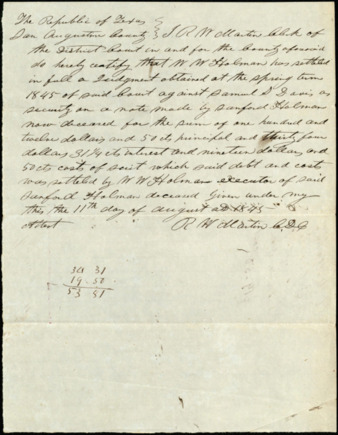 The Republic of Texas
San Augustine County } I R W Martin Clerk of
the District Court in and for the County aforesaid
do hereby certify that W W Holman has settled
in full a Judgment obtained at the Spring term
1845 of said Court against Samuel S Davis as
security on a note made by Sanford Holman
now deceased for the sum of one hundred and
twelve dollars and 50 cts principal and thirty four
dollars 31 1/4 cts interest and nineteen dollars and
50 cts costs of suit which said debt and costs
was settled by W W Holman executor of said
Sanford Holman deceased Given under my
this the 11th day of August AD 1845
Attest R W Martin C.D.C
34 31
19.50
53 81